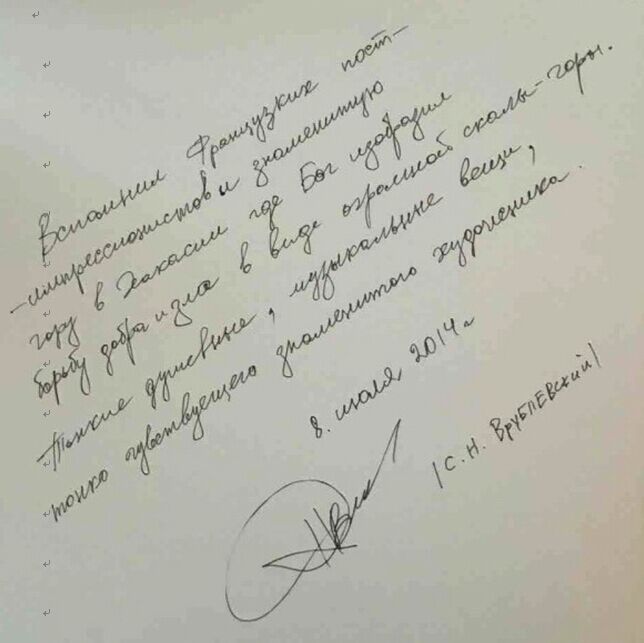 Вспомнил Французких пост-
-импрессионистов и знаменитую
гору в Хакасии где Бог изобразил
борьбу добра и зла в виде огромной скалы-горы.
Такие душевные, музыкальные вещи,
тонко чувствующего знаменитого художника.
8. июля 2014 г.
/С. Н. Врублевский/